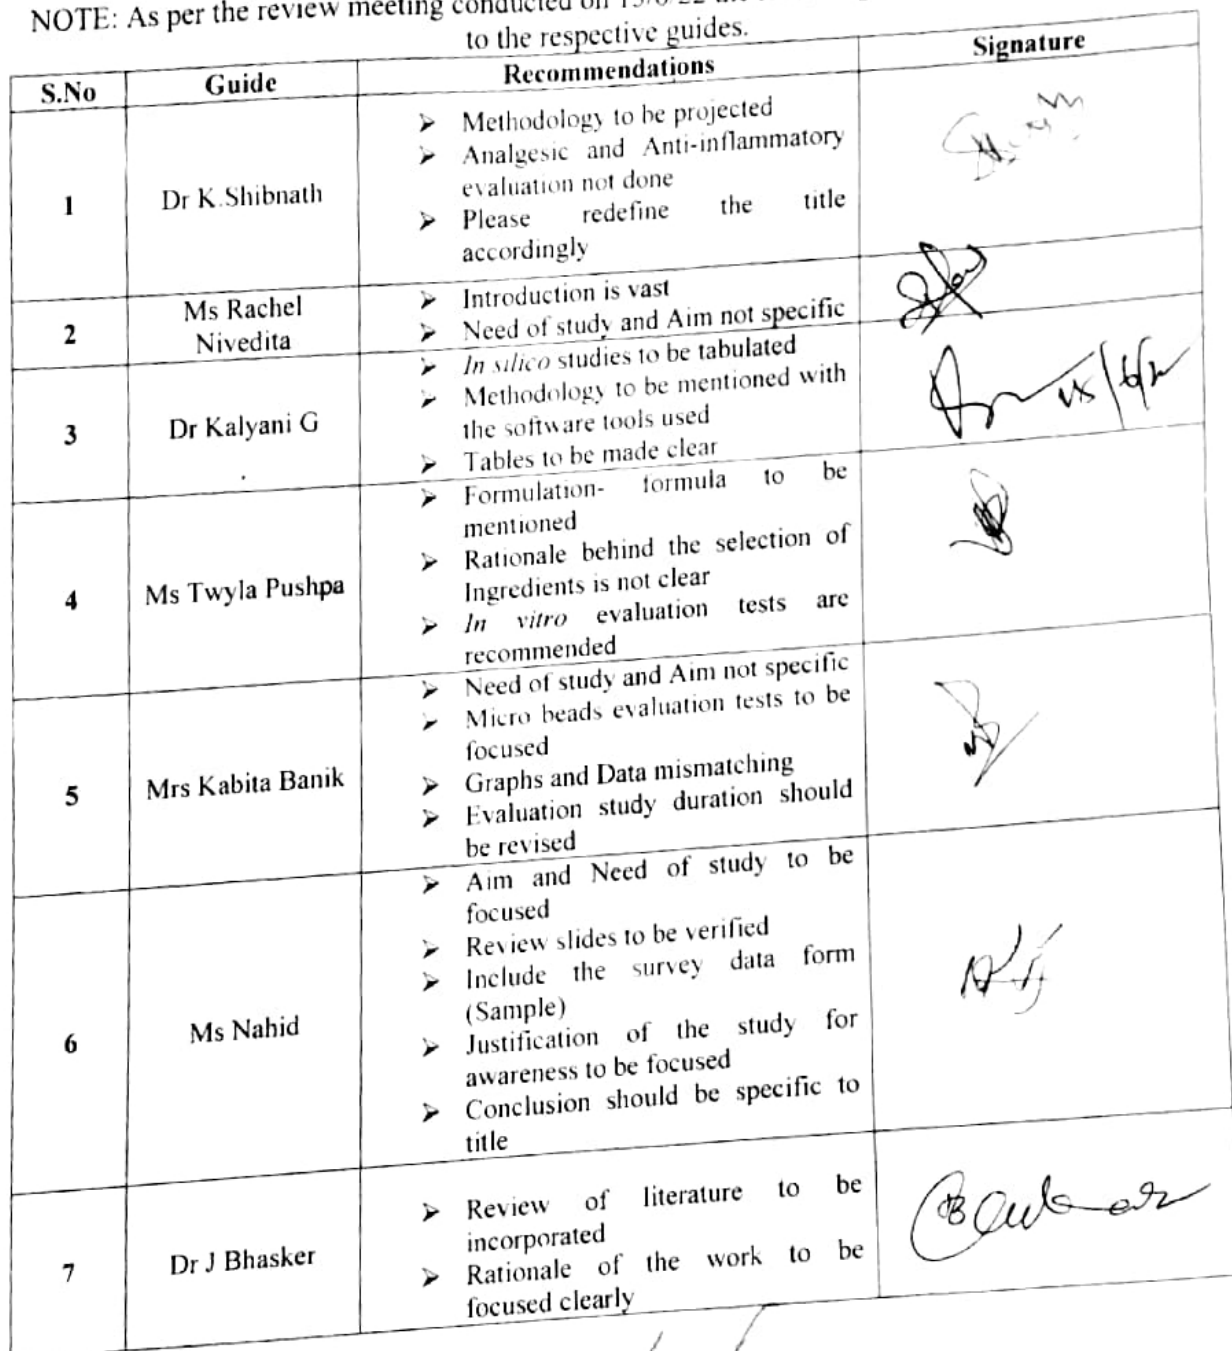 NOTE: As per the review meeting conducted on
to the respective guides.
S.No Guide Recommendations Signature
1 Dr K.Shibnath
➢ Methodology to be projected
➢ Analgesic and Anti-inflammatory
evaluation not done
➢ Please redefine the title
accordingly
2 Ms Rachel
Nivedita
➢ Introduction is vast
➢ Need of study and Aim not specific
3 Dr Kalyani G
➢ In silico studies to be tabulated
➢ Methodology to be mentioned with
the software tools used
➢ Tables to be made clear
4 Ms Twyla Pushpa
➢ Formulation- formula to be
mentioned
➢ Rationale behind the selection of
Ingredients is not clear
➢ In vitro evaluation tests are
recommended
5 Mrs Kabita Banik
➢ Need of study and Aim not specific
➢ Micro beads evaluation tests to be
focused
➢ Graphs and Data mismatching
➢ Evaluation study duration should
be revised
6 Ms Nahid
➢ Aim and Need of study to be
focused
➢ Review slides to be verified
➢ Include the survey data form
(Sample)
➢ Justification of the study for
awareness to be focused
➢ Conclusion should be specific to
title
7 Dr J Bhasker
➢ Review of literature to be
incorporated
➢ Rationale of the work to be
focused clearly